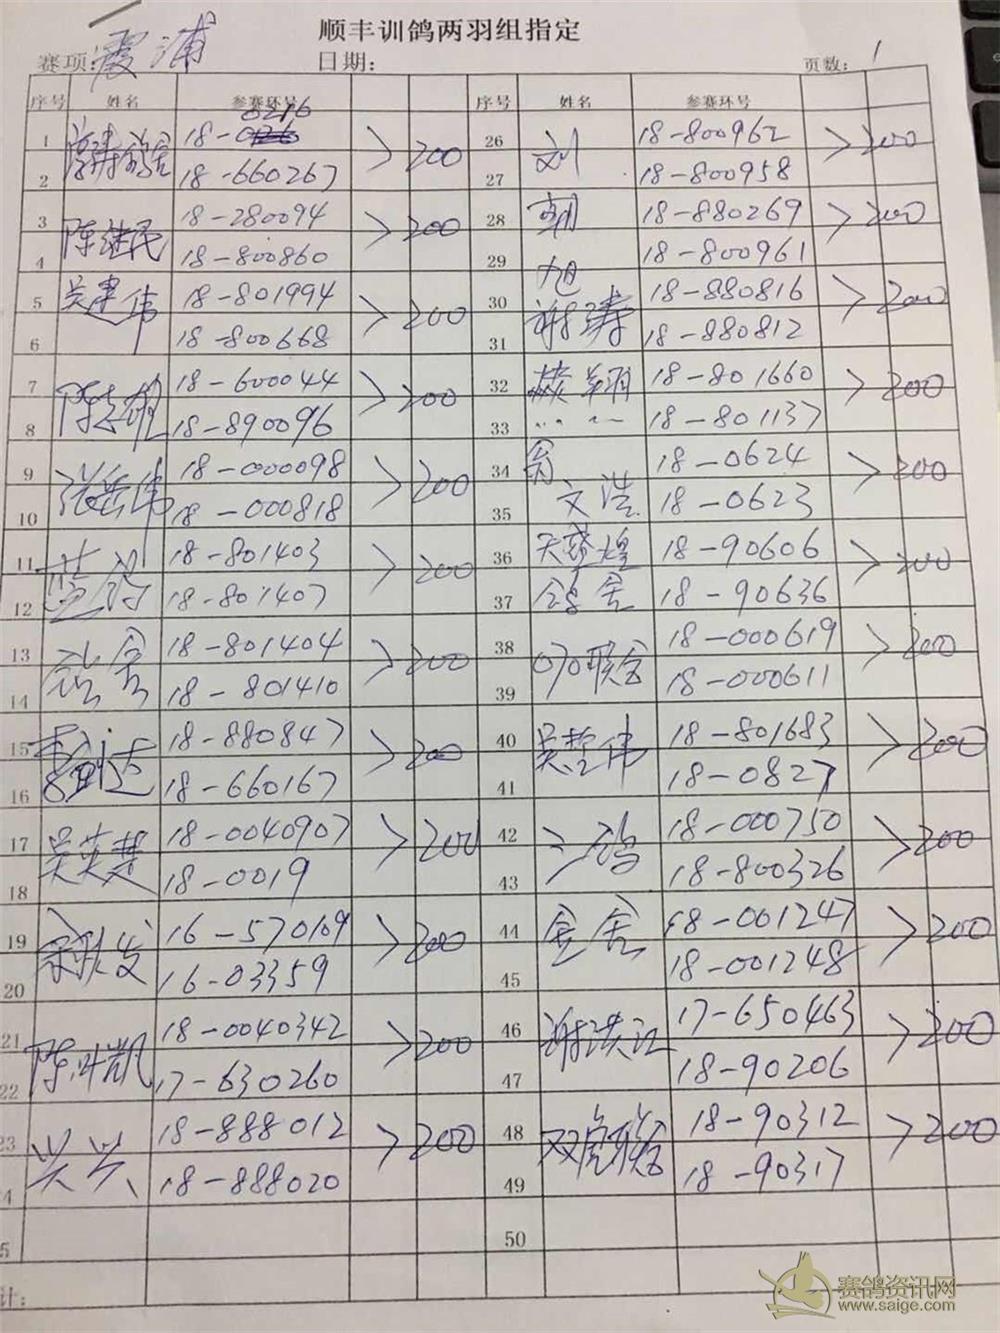 顺丰训鸽两羽组指定
赛项: 霞浦 日期: 页数: 1
序号 姓名 参赛环号 序号 姓名 参赛环号
1 18-0216 26 刘 18-800962
2 18-660267 >200 27 18-800958 >200
3 陈继民 18-280094 28 朝 18-880269
4 18-800860 >200 29 旭 18-800961 >200
5 吴建伟 18-801994 30 谢涛 18-880816
6 18-800668 >200 31 18-880812 >200
7 陈志雄 18-600044 32 翔 18-801660
8 18-890096 >200 33 18-801137 >200
9 张岳伟 18-000098 34 翁 18-0624
10 18-000818 >200 35 文浩 18-0623 >200
11 18-801403 36 天 煌 18-90606
12 18-801407 >200 37 鸽舍 18-90636 >200
13 18-801404 38 070联合 18-000619
14 舍 18-801410 >200 39 18-000611 >200
15 18-880847 40 吴哲伟 18-801683
16 18-660167 >200 41 18-0827 >200
17 吴英楚 18-0040907 42 三鸽 18-000750
18 18-0019 >200 43 18-800326 >200
19 发 16-570109 44 金舍 18-001247
20 16-03359 >200 45 18-001248 >200
21 陈叶凯 18-0040342 46 谢洪江 17-650463
22 17-630260 >200 47 18-90206 >200
23 兴兴 18-888012 48 双虎联合 18-90312
4 18-888020 >200 49 18-90317 >200
5 50
计:
赛鸽资讯网
www.saige.com